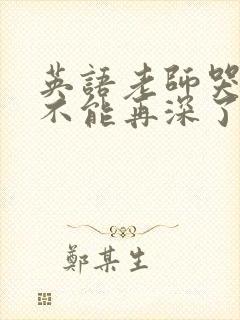 英語老師哭
不能再深了
鄭某生